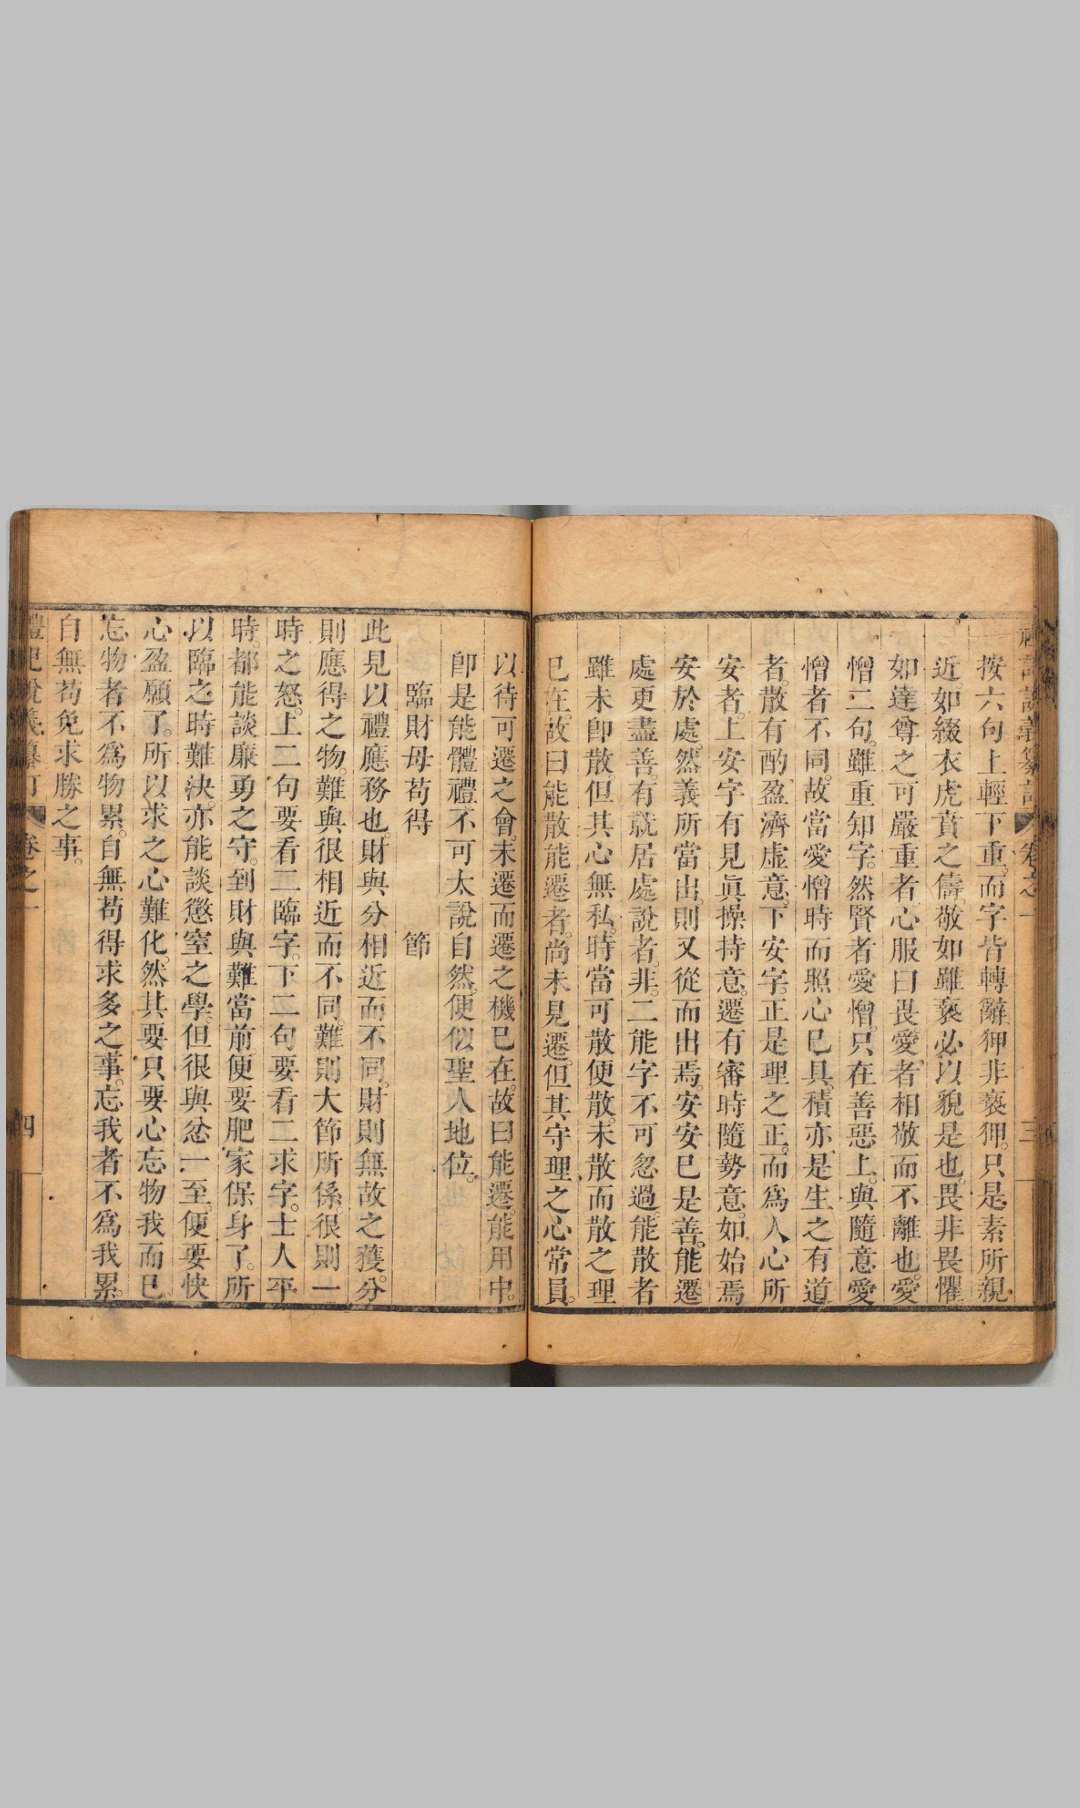 按六句上輕下重。而字皆轉辭狎非褻狎。只是素所親
近如綴衣虎賁之儔敬如雖褻必以貌是也。畏非畏懼
如達尊之可嚴重者心服曰畏愛者相敬而不離也。愛
憎二句。雖重知字。然賢者愛憎。只在善惡上。與隨意愛
憎者不同。故當愛憎時而照心已具。積亦是生之有道
者。散有酌盈濟虛意。下安字。正是理之正。而爲人心所
安者。上安字有見眞操持意。遷有審時隨勢意。如始焉
安於處。然義所當出。則又從而出焉。安安已是善。能遷
處更盡善。有就居處說者。非。二能字不可忽過。能散者
雖未卽散但其心無私。時當可散便散。未散而散之理
已在。故曰能散能遷者。尚未見遷。但其守理之心常員。
以待可遷之會。未遷而遷之機已在。故曰能遷。能用中。
卽是能體禮不可太說自然。便似聖人地位。
臨財母苟得　節
此見以禮應務也。財與分相近而不同。財則無故之獲。分
則應得之物。難與很相近而不同。難則大節所係。很則一
時之怒。上二句要看二臨字。下二句要看二求字。士人平
時。都能談廉勇之守。到財與難當前便要肥家保身了。所
以臨之時難決。亦能談懲窒之學。但很與忿一至。便要快
心盈願了。所以求之心難化。然其要只要心忘物我而已
忘物者不爲物累。自無苟得求多之事。忘我者不爲我累
自無苟免求勝之事。
卷之一　四